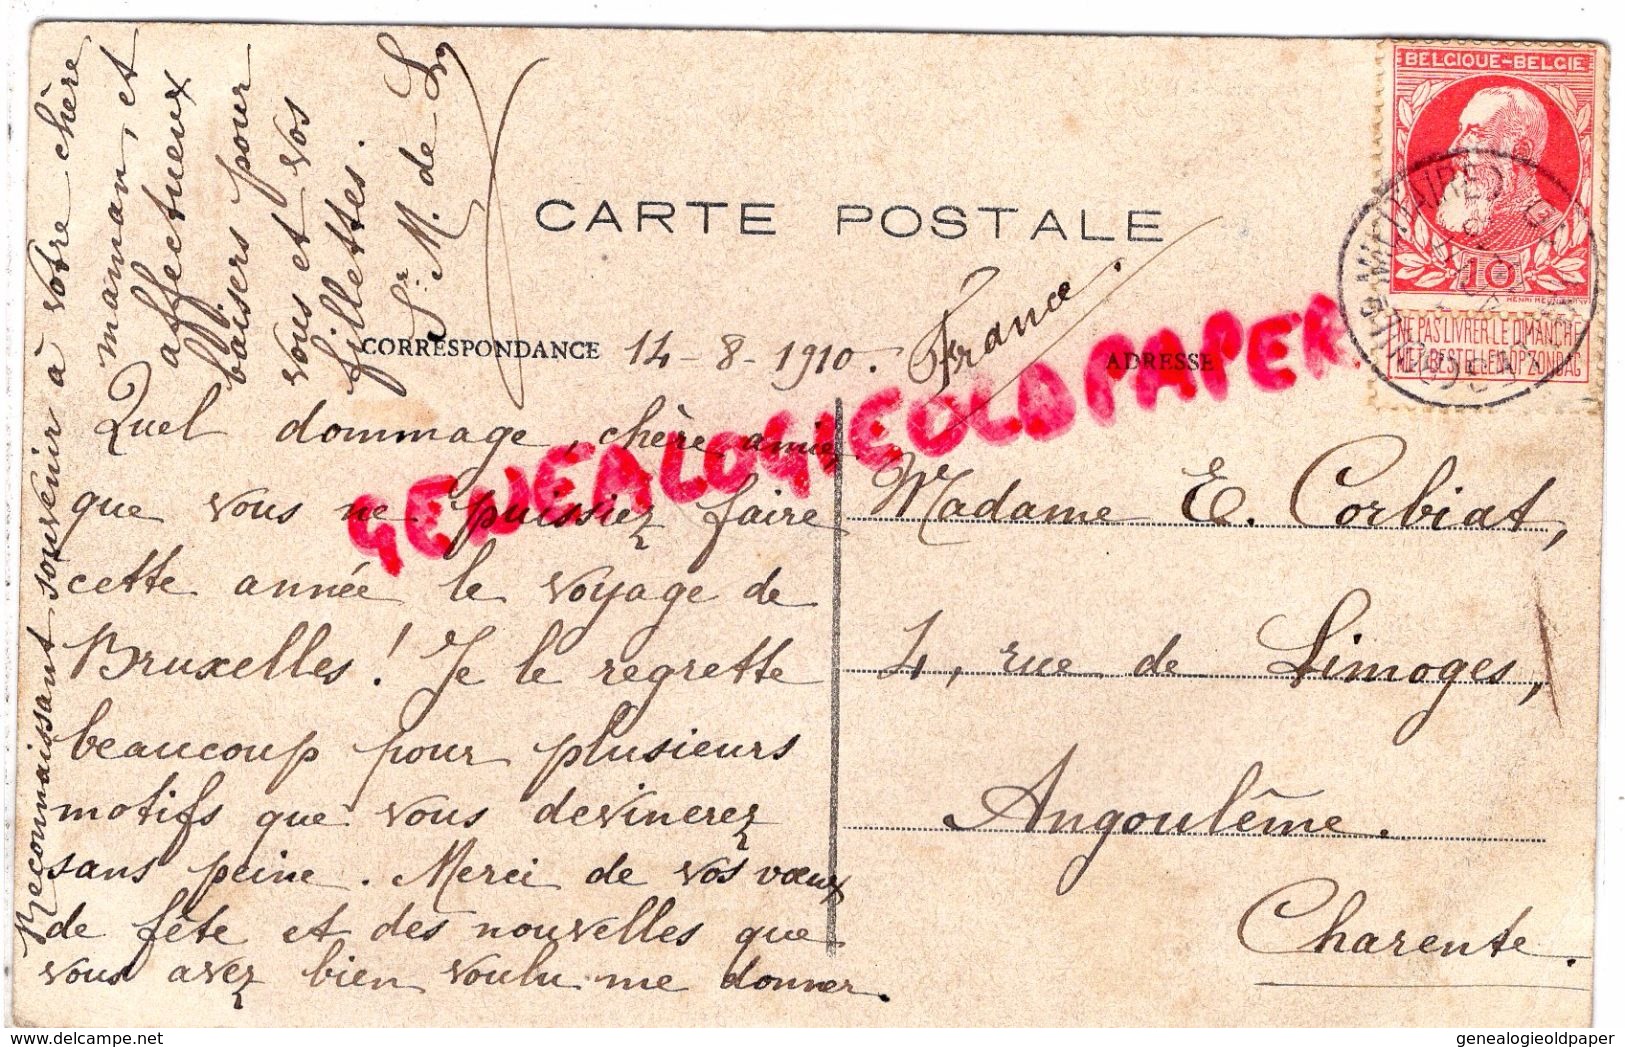 CARTE POSTALE
BELGIQUE-BELGIE
10
NE PAS LIVRER LE DIMANCHE
NIET BESTELLEN OP ZONDAG
CORRESPONDANCE
14-8-1910.
France.
ADRESSE
GENEALOGIEOLDPAPER
Quel dommage, chère amie,
que vous ne puissiez faire
cette année le voyage de
Bruxelles! Je le regrette
beaucoup pour plusieurs
motifs que vous devinerez
sans peine. Merci de vos vœux
de fête et des nouvelles que
vous avez bien voulu me donner.
Reconnaissant souvenir à votre chère
maman, et
affectueux
baisers pour
vous et vos
fillettes.
Sr. M. de
Madame E. Corbiat,
4, rue de Limoges,
Angoulême.
Charente.
genealogieoldpaper